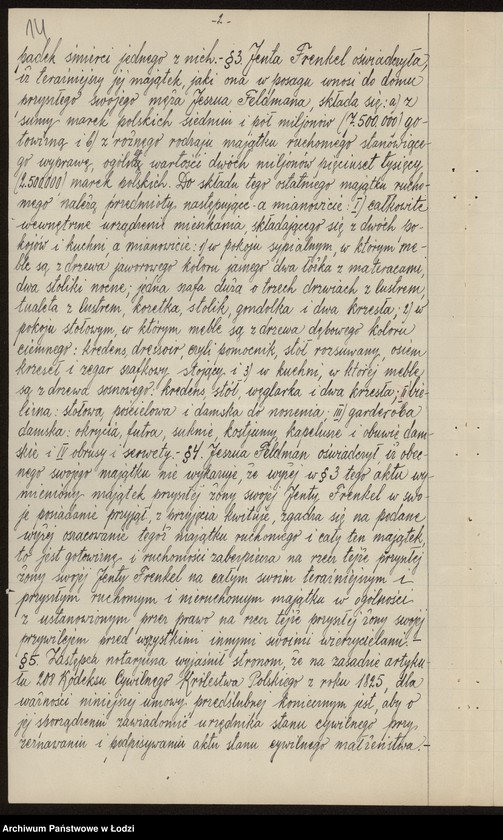 14
-2-
padek śmierci jednego z nich.- §3. Jenta Frenkel oświadczyła,
iż teraźniejszy jej majątek, jaki ona w posagu wnosi do domu
przyszłego swojego męża Jesua Feldmana, składa się: a) z
sumy marek polskich siedmiu i pół miljonów (7.500.000) go-
towizną i b) z różnego rodzaju majątku ruchomego stanowiące-
go wyprawę, ogólną wartości dwóch miljonów pięciuset tysięcy
(2.500.000) marek polskich. Do składu tego ostatniego majątku rucho-
mego należą przedmioty następujące a mianowicie: I) całkowite
wewnętrzne urządzenie mieszkania, składającego się z dwóch po-
kojów i kuchni, a mianowicie: 1) w pokoju sypialnym, w którym me-
ble są z drzewa jaworowego koloru jasnego dwa łóżka z materacami,
dwa stoliki nocne, jedna szafa duża o trzech drzwiach z lustrem,
tualeta z lustrem, kozetka, stolik, gondolka i dwa krzesła; 2) w
pokoju stołowym, w którym meble są z drzewa dębowego koloru
ciemnego: kredens, dressoir, czyli pomocnik, stół rozsuwany, osiem
krzeseł i zegar szafkowy, stojący i 3) w kuchni, w której meble
są z drzewa sosnowego: kredens, stół, węglarka i dwa krzesła; II) bie-
lizna: stołowa, pościelowa i damska do noszenia; III) garderoba
damska: okrycia, futra, suknie, kostjumy, kapelusze i obuwie dam-
skie i IV obrusy i serwety.- §4. Jesua Feldman oświadczył iż obec-
nego swojego majątku nie wykazuje, że wyżej w § 3 tego aktu wy-
mieniony majątek przyszłej żony swojej Jenty Frenkel w swo-
je posiadanie przyjął, z przyjęcia kwituje, zgadza się na podane
wyżej oszacowanie tegoż majątku ruchomego i cały ten majątek,
to jest gotowiznę i ruchomości zabezpiecza na rzecz tejże przyszłej
żony swojej Jenty Frenkel na całym swoim teraźniejszym i
przyszłym ruchomym i nieruchomym majątku w ogólności
z ustanowionym przez prawo na rzecz tejże przyszłej żony swojej
przywilejem przed wszystkimi innymi swoimi wierzycielami.-
§5. Zastępca notarjusza wyjaśnił stronom, że na zasadzie artyku-
łu 208 Kodeksu Cywilnego Królestwa Polskiego z roku 1825, dla
ważności niniejszej umowy przedślubnej koniecznym jest, aby o
jej sporządzeniu zawiadomić urzędnika stanu cywilnego przy
zeznawaniu i podpisywaniu aktu stanu cywilnego małżeństwa.-
Archiwum Państwowe w Łodzi